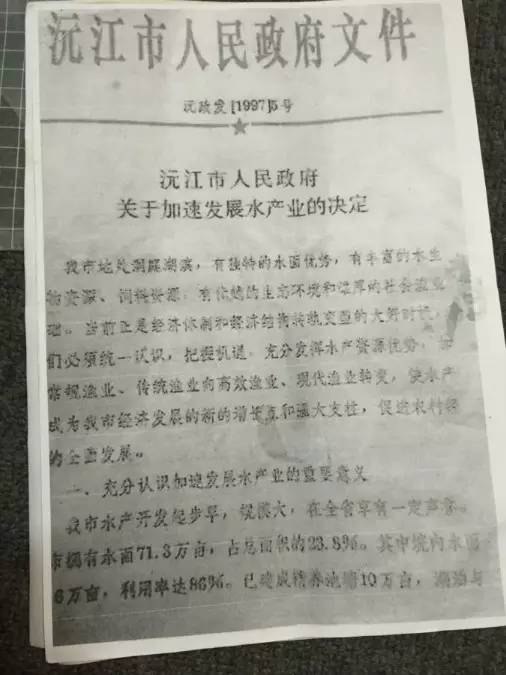 沅江市人民政府文件
沅政发[1997]5号
沅江市人民政府
关于加速发展水产业的决定
我市地处洞庭湖滨，有独特的水面优势，有丰富的水生
物资源、饲料资源，有优越的生态环境和雄厚的社会渔业
基础。当前正是经济体制和经济结构转轨变型的大好时机，
们必须统一认识，把握机遇，充分发挥水产资源优势，
常规渔业、传统渔业向高效渔业、现代渔业转变，使水产
成为我市经济发展的新的增长点和强大支柱，促进农村经
的全面发展。
一、充分认识加速发展水产业的重要意义
我市水产开发起步早，规模大，在全省享有一定声誉。
市拥有水面71.3万亩，占总面积的23.8%。其中境内水面
6万亩，利用率达86%。已建成精养池塘10万亩，湖泊与